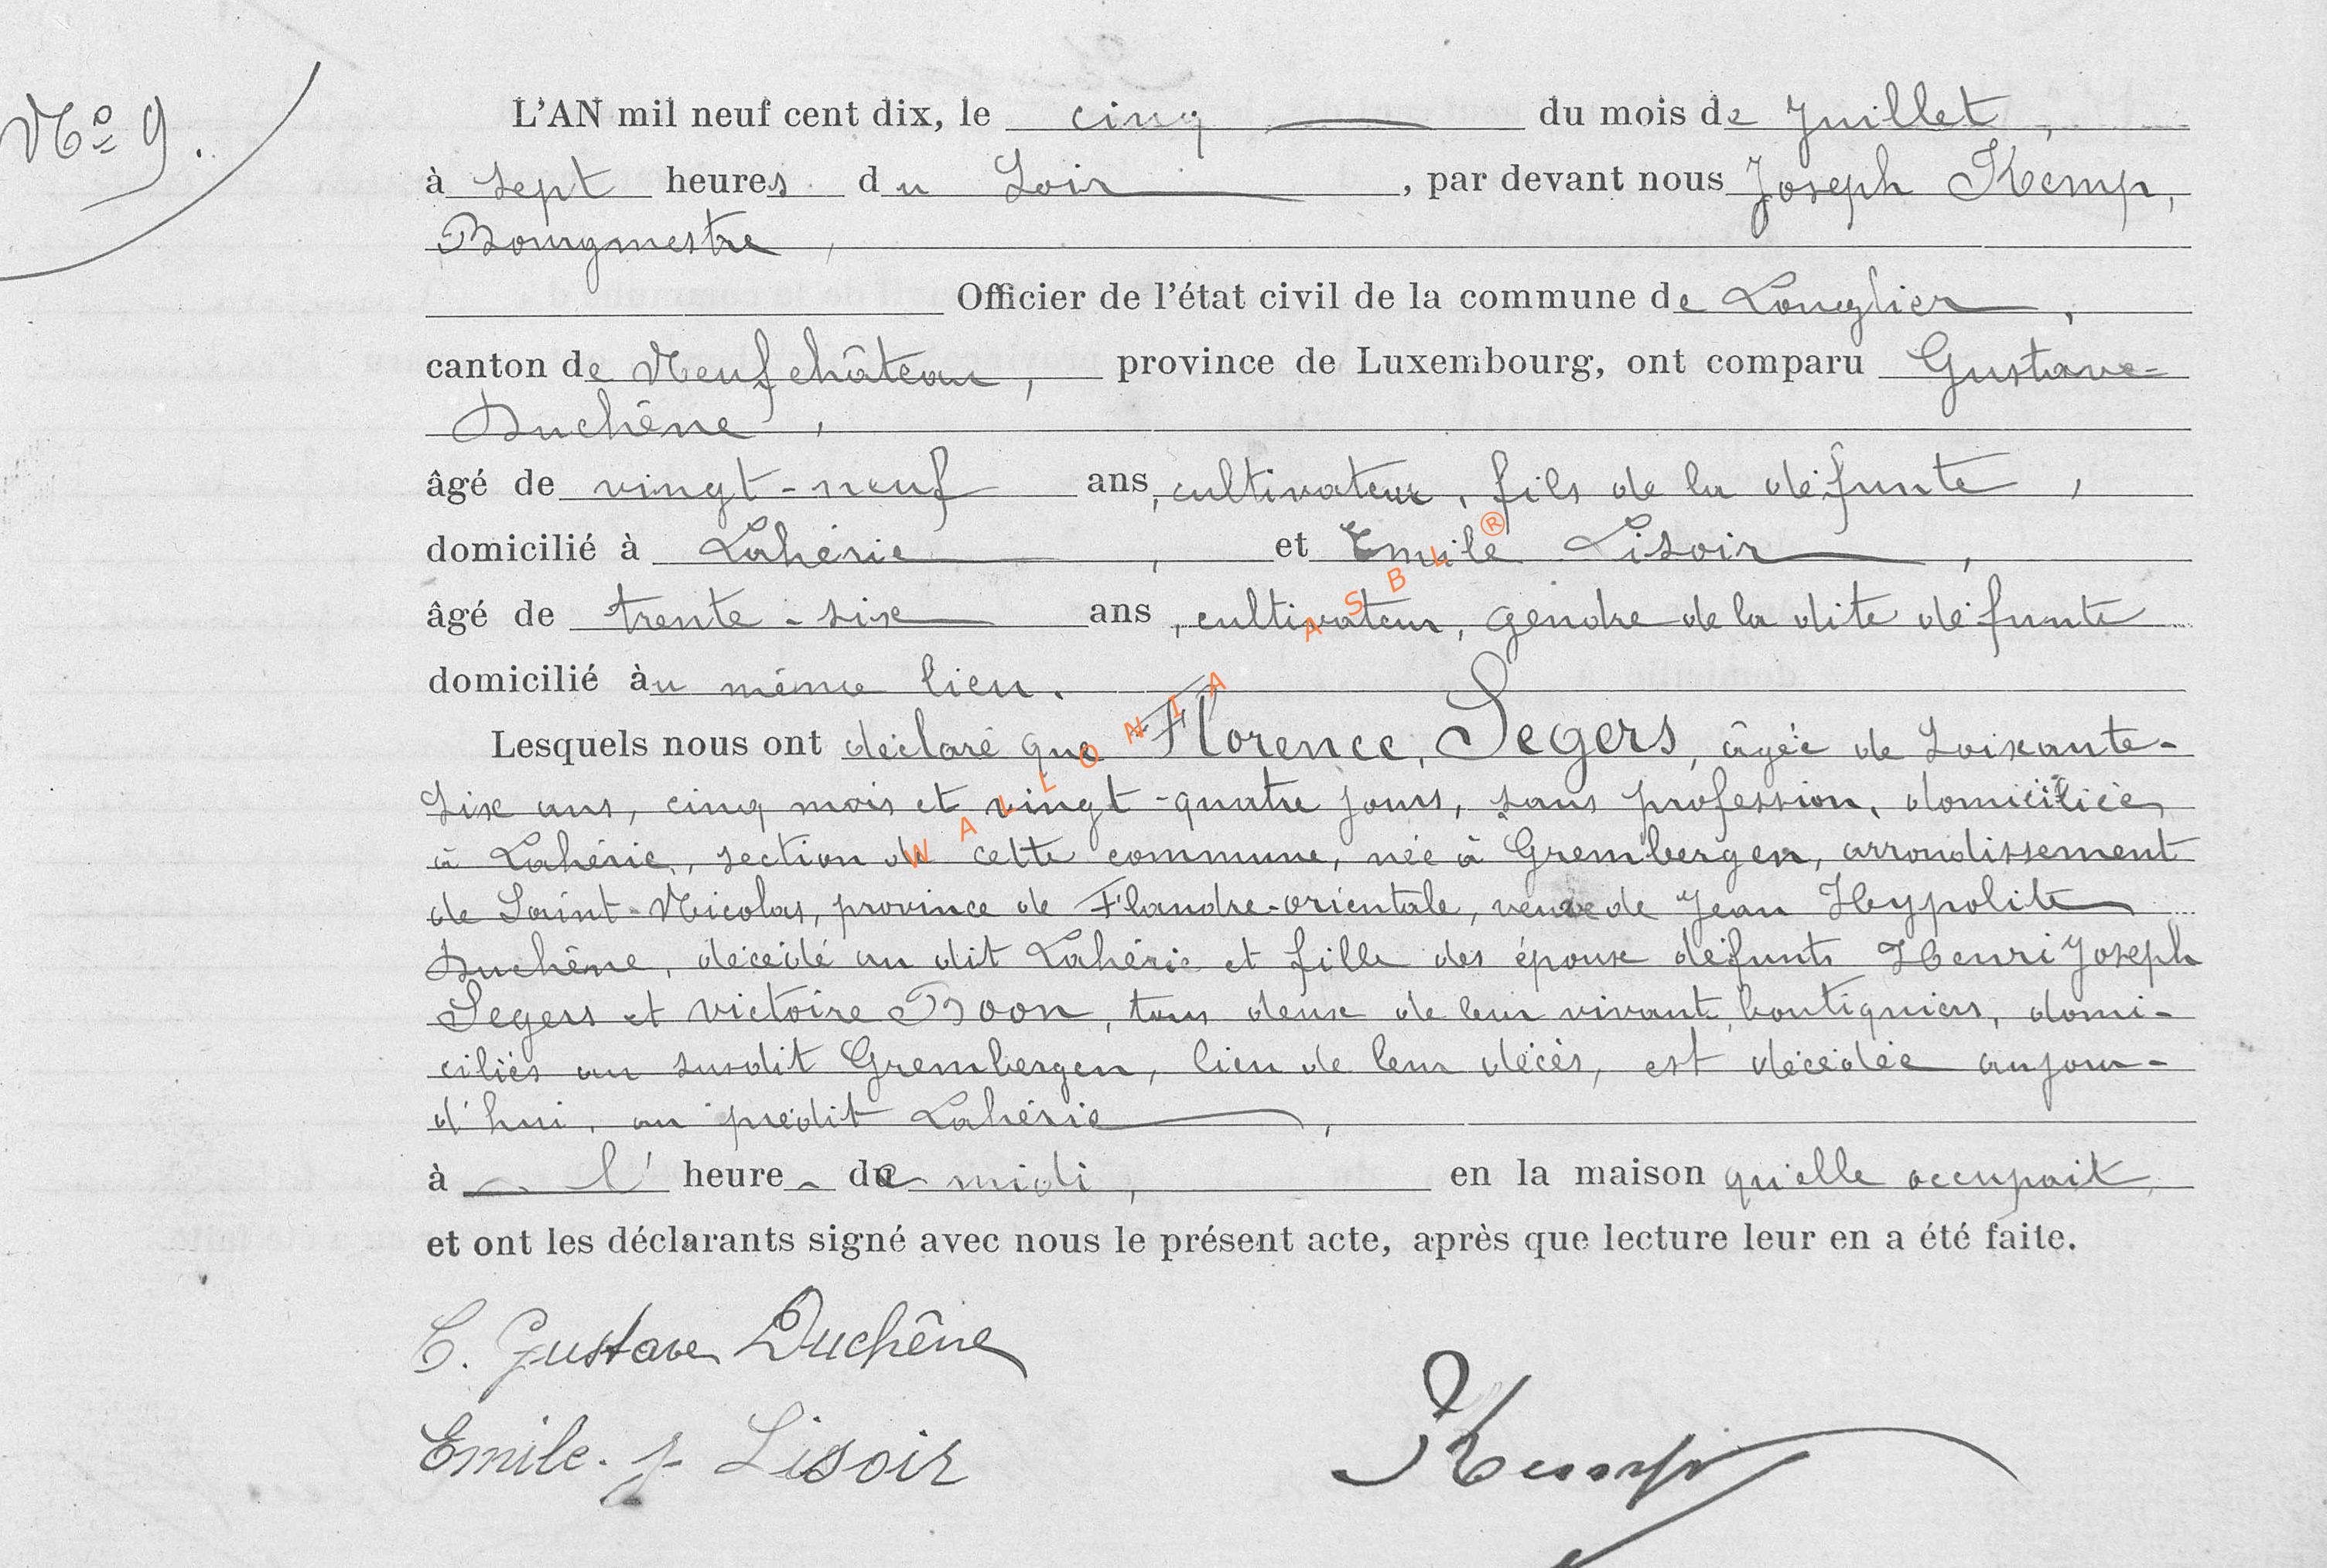 Nº 9.
L'AN mil neuf cent dix, le cinq du mois de Juillet,
à sept heures du Soir, par devant nous Joseph Kemp,
Bourgmestre,
Officier de l'état civil de la commune de Longlier,
canton de Neufchâteau, province de Luxembourg, ont comparu Gustave-
Duchêne,
âgé de vingt-neuf ans, cultivateur, fils de la défunte,
domicilié à Lahérie, et Emile Lisoir,
âgé de trente-six ans, cultivateur, gendre de la dite défunte
domicilié au même lieu.
Lesquels nous ont déclaré que Florence, Segers, âgée de Soixante-
Six ans, cinq mois et vingt-quatre jours, sans profession, domiciliée
à Lahérie, section de cette commune, née à Grembergen, arrondissement
de Saint-Nicolas, province de Flandre-orientale, veuve de Jean Hypolite
Duchêne, décédé au dit Lahérie et fille des époux défunts Henri Joseph
Segers et Victoire Boon, tous deux de leur vivant, boutiquiers, domi-
ciliés au susdit Grembergen, lieu de leur décès, est décédée aujour-
d'hui, au prédit Lahérie,
à l' heure de midi, en la maison qu'elle occupait,
et ont les déclarants signé avec nous le présent acte, après que lecture leur en a été faite.
C. Gustave Duchêne
Emile. J. Lisoir
Kemp
WALLONIA ASBL ®